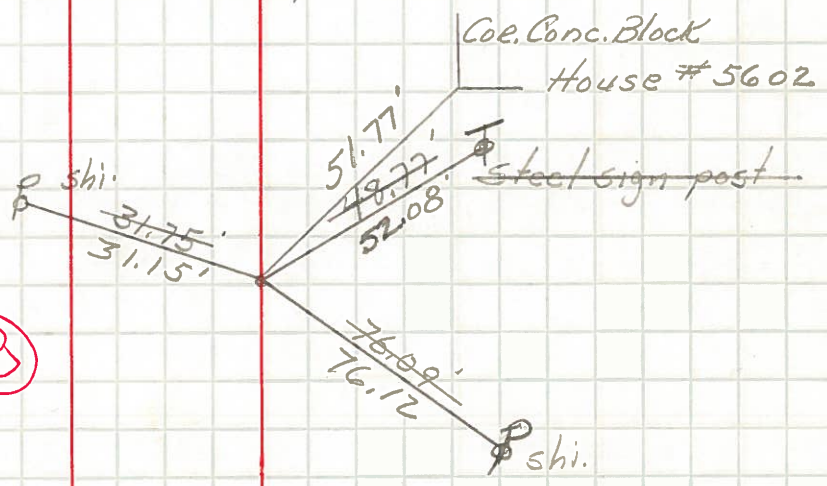 Coe. Conc. Block
House #5602
51.77'
48.77'
52.08'
Steel sign post
shi.
31.75'
31.15'
76.09'
76.12
shi.